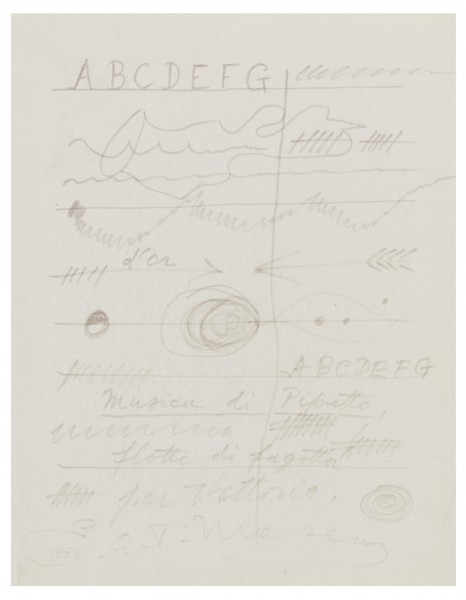 ABCDEFG
d'or
ABCDEFG
Musica di Pipetto,
flotto di fagotto
per Vittorio.
E.L.T. Mesens